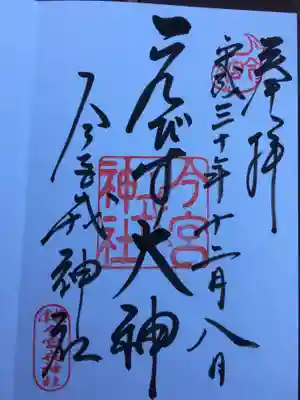 奉拝
平成三十年十二月八日
ゑびす大神
今宮戎神社
今宮
戎
神社